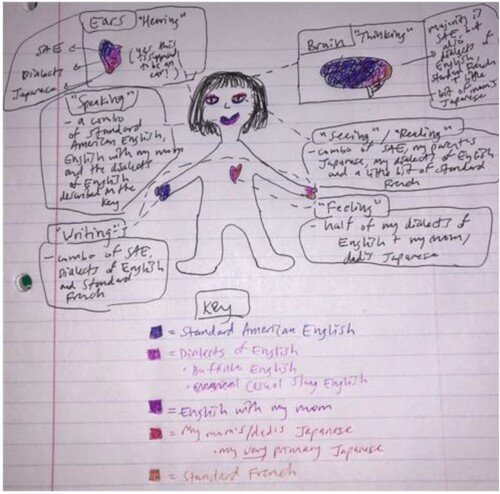 Ears "Hearing"
SAE
Dialects
Japanese
(yes, this
is supposed
to be an
ear!)
Brain "Thinking"
majority is
SAE, but
also
dialects of
English,
standard French
& little
bit of mom's
Japanese
"Speaking"
- a combo
of Standard
American English,
English with my mom
and the dialects
of English
described in the
key
"Seeing"/"Reading"
- combo of SAE, my parents
Japanese, my dialects of English
and a little bit of standard
French
"Feeling"
- half of my dialects of
English + my mom/
dad's Japanese
"Writing"
- combo of SAE,
Dialects of English
and Standard
French
Key
= Standard American English
= Dialects of English
• Buffalo English
• Casual Slang English
= English with my mom
= My mom's/dad's Japanese
• my very primary Japanese
= Standard French